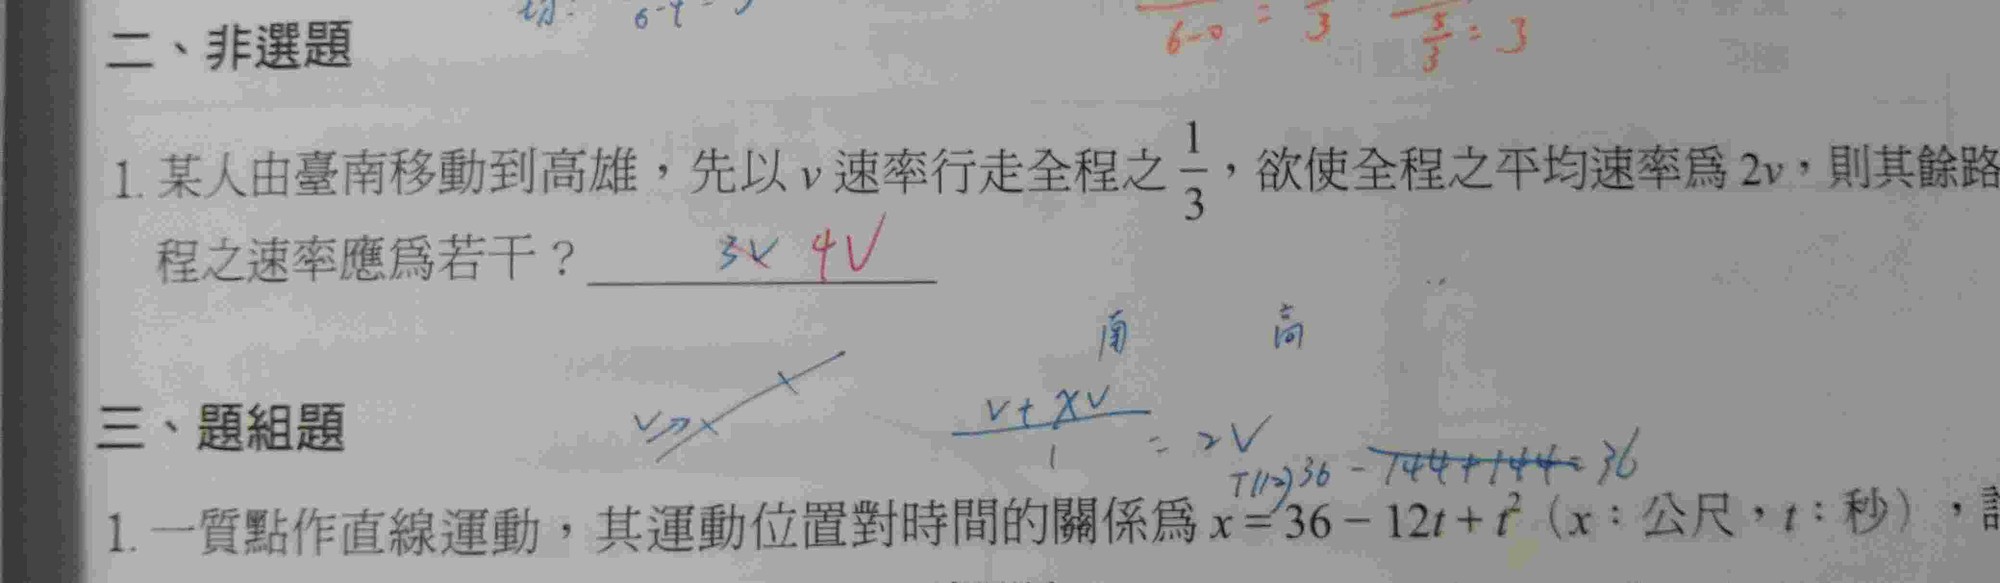 6-0 = 3
= 3
二、非選題
1. 某人由臺南移動到高雄，先以 v 速率行走全程之 1/3，欲使全程之平均速率為 2v，則其餘路
程之速率應為若干？ 3v 4v
南 高
v
v + xv / 1 = 2v
三、題組題
T(12) 36 - 144 + 144 = 36
1. 一質點作直線運動，其運動位置對時間的關係為 x = 36 − 12t + t²（x：公尺，t：秒），